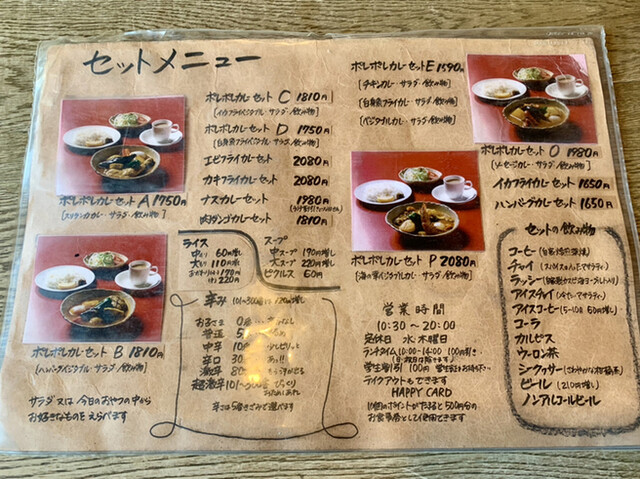 セットメニュー
ポレポレカレーセット A 1750円
[スリランカカレー・サラダ・飲み物]
ポレポレカレーセット B 1810円
[ハンバーグベジタブルカレー・サラダ・飲み物]
サラダ又は今日のおやつの中から
お好きなものをえらべます
ポレポレカレーセット C 1810円
[イカフライベジタブルカレー・サラダ・飲み物]
ポレポレカレーセット D 1750円
[白身魚フライベジタブルカレー・サラダ・飲み物]
エビフライカレーセット 2080円
カキフライカレーセット 2080円
ナスカレーセット 1980円
肉ダンゴカレーセット 1810円
ライス
中もり 60円増し
大もり 110円増し
スープ
中スープ 170円増し
大スープ 220円増し
ピクルス 60円
辛み
お子さま 0
普通 5
中辛 10
辛口 30
激辛 80
超激辛 101〜300 びっくり
辛さは5番きざみで選べます
ポレポレカレーセット E 1590円
[チキンカレー・サラダ・飲み物]
[白身魚フライカレー・サラダ・飲み物]
[ベジタブルカレー・サラダ・飲み物]
ポレポレカレーセット P 2080円
[海の幸ベジタブルカレー・サラダ・飲み物]
営業時間
10:30〜20:00
定休日 水・木曜日
ランチタイム 10:00-14:00 100円引き
学生割引 100円
テイクアウトもできます
HAPPY CARD
10個のポイントがたまると500円分の
お食事券として使用できます
ポレポレカレーセット O 1980円
[ソーセージカレー・サラダ・飲み物]
イカフライカレーセット 1650円
ハンバーグカレーセット 1650円
セットの飲み物
コーヒー
チャイ
ラッシー
アイスチャイ
アイスコーヒー
コーラ
カルピス
ウーロン茶
シークヮサー
ビール (210円増し)
ノンアルコールビール